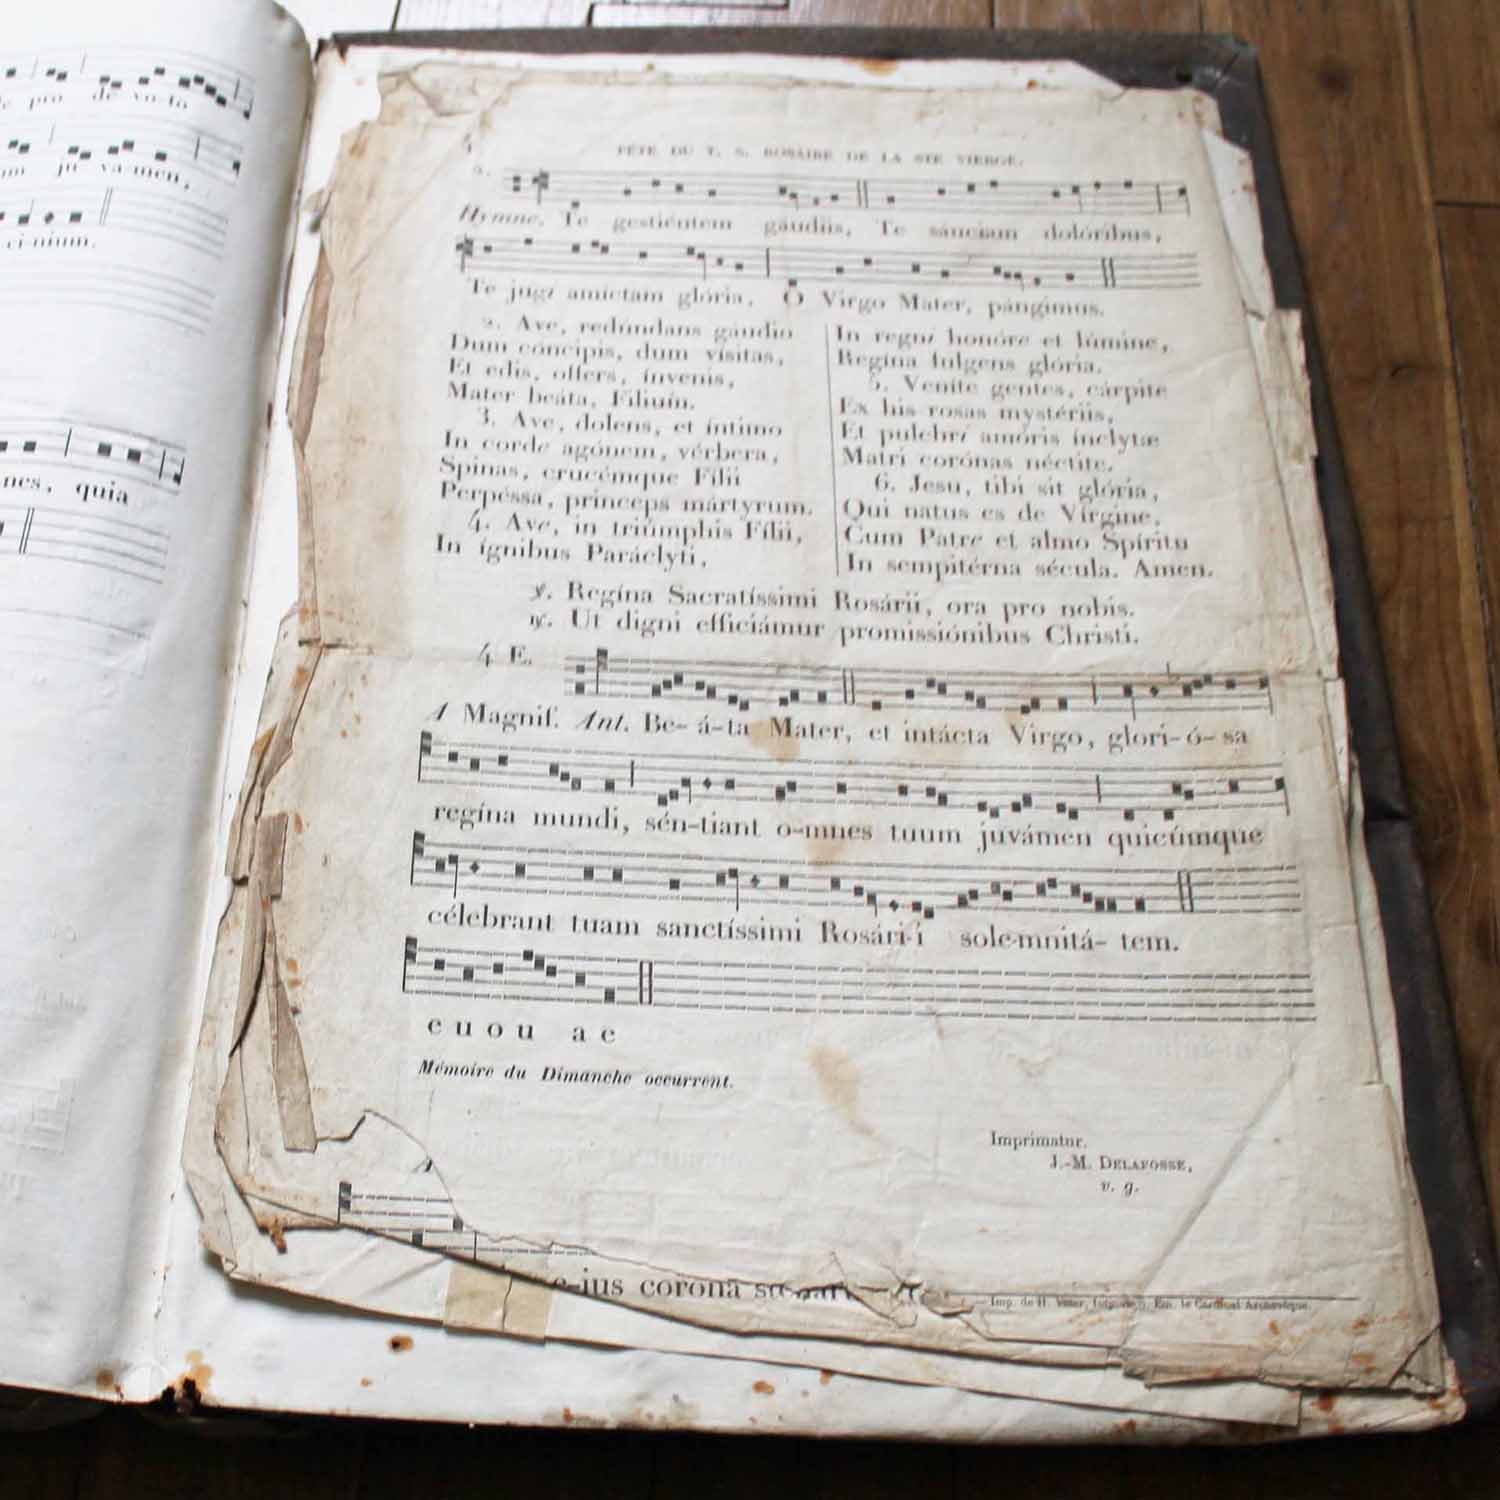 pro de vo-to
ju va-men,
ci-nium.
nes, quia
4
FÊTE DU T. S. ROSAIRE DE LA STE VIERGE.
2.
Hymne. Te gestiéntem gáudiis, Te sáuciam dolóribus,
Te jugi amíctam glória, O Virgo Mater, pángimus.
2. Ave, redúndans gáudio
Dum cóncipis, dum vísitas,
Et edis, offers, ínvenis,
Mater beáta, Fílium.
3. Ave, dolens, et íntimo
In corde agónem, vérbera,
Spinas, crucémque Fílii
Perpéssa, princeps mártyrum.
4. Ave, in triúmphis Fílii,
In ígnibus Parácliti,
In regni honóre et lúmine,
Regína fulgens glória.
5. Veníte gentes, cárpite
Ex his rosas mystériis,
Et pulchri amóris ínclytæ
Matri corónas néctite.
6. Jesu, tibi sit glória,
Qui natus es de Vírgine,
Cum Patre et almo Spíritu
In sempitérna sécula. Amen.
℣. Regína Sacratíssimi Rosárii, ora pro nobis.
℟. Ut digni efficiámur promissiónibus Christi.
4 E.
A Magnif. Ant. Be- á-ta Mater, et intácta Virgo, glori-ó-sa
regína mundi, sén-tiant o-mnes tuum juvámen quicúmque
célebrant tuam sanctíssimi Rosári-i sole-mnitá- tem.
e u o u a e
Mémoire du Dimanche occurrent.
Imprimatur.
J.-M. DELAFOSSE,
v. g.
A
e-ius corona
Imp. de H. Em. le Cardinal Archevêque.